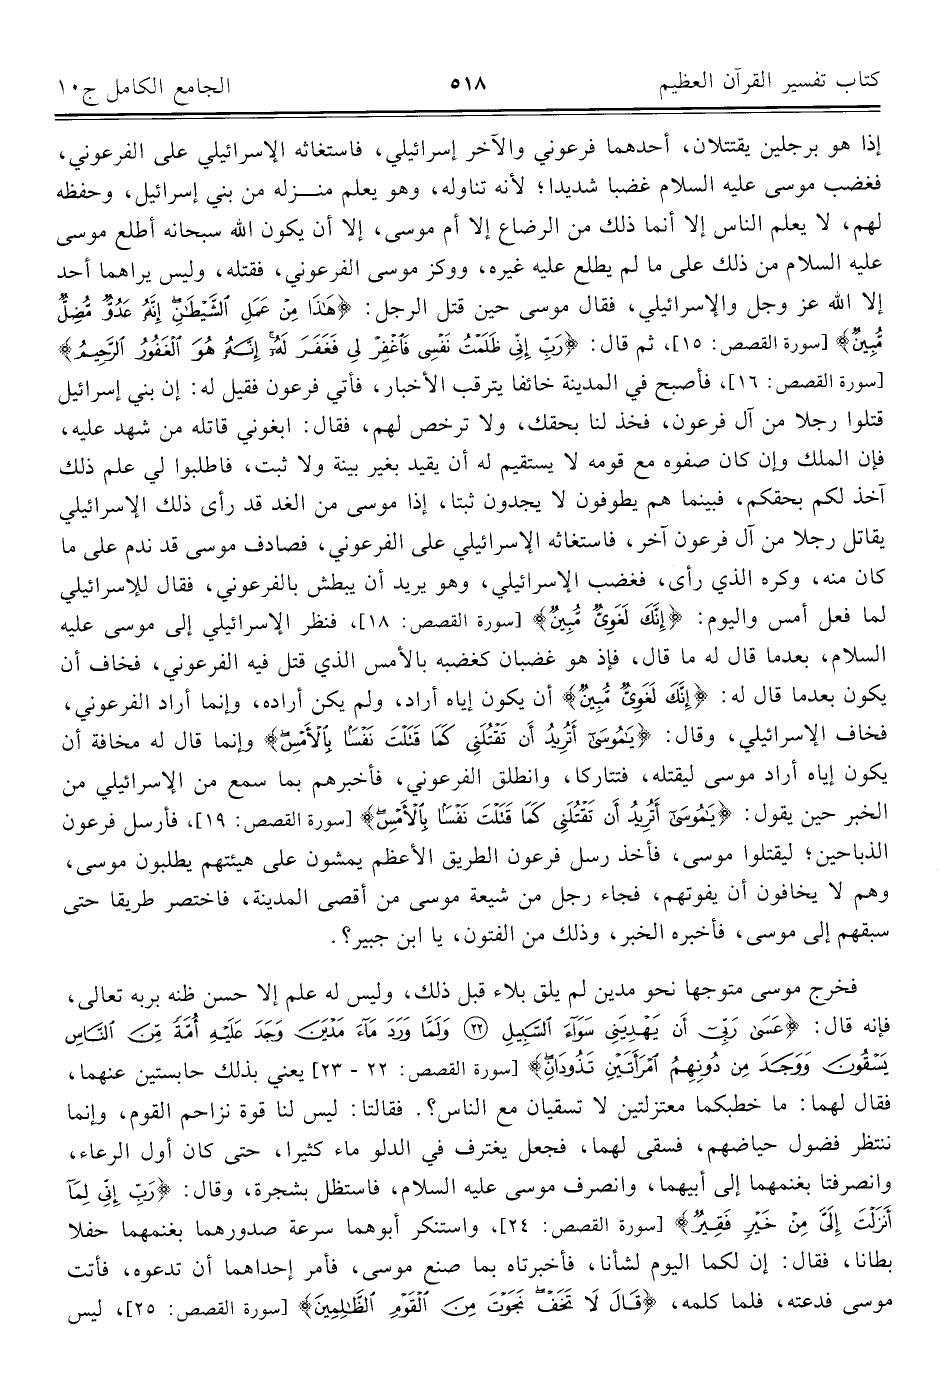 كتاب تفسير القرآن العظيم ٥١٨ الجامع الكامل ج١٠
إذا هو برجلين يقتتلان، أحدهما فرعوني والآخر إسرائيلي، فاستغاثه الإسرائيلي على الفرعوني،
فغضب موسى عليه السلام غضبا شديدا؛ لأنه تناوله، وهو يعلم منـزله من بني إسرائيل، وحفظه
لهم، لا يعلم الناس إلا أنما ذلك من الرضاع إلا أم موسى، إلا أن يكون الله سبحانه أطلع موسى
عليه السلام من ذلك على ما لم يطلع عليه غيره، ووكز موسى الفرعوني، فقتله، وليس يراهما أحد
إلا الله عز وجل والإسرائيلي، فقال موسى حين قتل الرجل: ﴿هَٰذَا مِنْ عَمَلِ ٱلشَّيْطَٰنِۖ إِنَّهُۥ عَدُوٌّ مُّضِلٌّ
مُّبِينٌ﴾ [سورة القصص: ١٥]، ثم قال: ﴿رَبِّ إِنِّى ظَلَمْتُ نَفْسِى فَٱغْفِرْ لِى فَغَفَرَ لَهُۥٓۚ إِنَّهُۥ هُوَ ٱلْغَفُورُ ٱلرَّحِيمُ﴾
[سورة القصص: ١٦]، فأصبح في المدينة خائفا يترقب الأخبار، فأتي فرعون فقيل له: إن بني إسرائيل
قتلوا رجلا من آل فرعون، فخذ لنا بحقك، ولا ترخص لهم، فقال: ابغوني قاتله من شهد عليه،
فإن الملك وإن كان صفوه مع قومه لا يستقيم له أن يقيد بغير بينة ولا ثبت، فاطلبوا لي علم ذلك
آخذ لكم بحقكم، فبينما هم يطوفون لا يجدون ثبتا، إذا موسى من الغد قد رأى ذلك الإسرائيلي
يقاتل رجلا من آل فرعون آخر، فاستغاثه الإسرائيلي على الفرعوني، فصادف موسى قد ندم على ما
كان منه، وكره الذي رأى، فغضب الإسرائيلي، وهو يريد أن يبطش بالفرعوني، فقال للإسرائيلي
لما فعل أمس واليوم: ﴿إِنَّكَ لَغَوِىٌّ مُّبِينٌ﴾ [سورة القصص: ١٨]، فنظر الإسرائيلي إلى موسى عليه
السلام، بعدما قال له ما قال، فإذ هو غضبان كغضبه بالأمس الذي قتل فيه الفرعوني، فخاف أن
يكون بعدما قال له: ﴿إِنَّكَ لَغَوِىٌّ مُّبِينٌ﴾ أن يكون إياه أراد، ولم يكن أراده، وإنما أراد الفرعوني،
فخاف الإسرائيلي، وقال: ﴿يَٰمُوسَىٰٓ أَتُرِيدُ أَن تَقْتُلَنِى كَمَا قَتَلْتَ نَفْسًۢا بِٱلْأَمْسِۖ﴾ وإنما قال له مخافة أن
يكون إياه أراد موسى ليقتله، فتتاركا، وانطلق الفرعوني، فأخبرهم بما سمع من الإسرائيلي من
الخبر حين يقول: ﴿يَٰمُوسَىٰٓ أَتُرِيدُ أَن تَقْتُلَنِى كَمَا قَتَلْتَ نَفْسًۢا بِٱلْأَمْسِۖ﴾ [سورة القصص: ١٩]، فأرسل فرعون
الذباحين؛ ليقتلوا موسى، فأخذ رسل فرعون الطريق الأعظم يمشون على هيئتهم يطلبون موسى،
وهم لا يخافون أن يفوتهم، فجاء رجل من شيعة موسى من أقصى المدينة، فاختصر طريقا حتى
سبقهم إلى موسى، فأخبره الخبر، وذلك من الفتون، يا ابن جبير؟.
فخرج موسى متوجها نحو مدين لم يلق بلاء قبل ذلك، وليس له علم إلا حسن ظنه بربه تعالى،
فإنه قال: ﴿عَسَىٰ رَبِّىٓ أَن يَهْدِيَنِى سَوَآءَ ٱلسَّبِيلِ ٢٢ وَلَمَّا وَرَدَ مَآءَ مَدْيَنَ وَجَدَ عَلَيْهِ أُمَّةً مِّنَ ٱلنَّاسِ
يَسْقُونَ وَوَجَدَ مِن دُونِهِمُ ٱمْرَأَتَيْنِ تَذُودَانِۖ﴾ [سورة القصص: ٢٢ - ٢٣] يعني بذلك حابستين عنهما،
فقال لهما: ما خطبكما معتزلتين لا تسقيان مع الناس؟. فقالتا: ليس لنا قوة نزاحم القوم، وإنما
ننتظر فضول حياضهم، فسقى لهما، فجعل يغترف في الدلو ماء كثيرا، حتى كان أول الرعاء،
وانصرفتا بغنمهما إلى أبيهما، وانصرف موسى عليه السلام، فاستظل بشجرة، وقال: ﴿رَبِّ إِنِّى لِمَآ
أَنزَلْتَ إِلَىَّ مِنْ خَيْرٍ فَقِيرٌ﴾ [سورة القصص: ٢٤]، واستنكر أبوهما سرعة صدورهما بغنمهما حفلا
بطانا، فقال: إن لكما اليوم لشأنا، فأخبرتاه بما صنع موسى، فأمر إحداهما أن تدعوه، فأتت
موسى فدعته، فلما كلمه، ﴿قَالَ لَا تَخَفْۖ نَجَوْتَ مِنَ ٱلْقَوْمِ ٱلظَّٰلِمِينَ﴾ [سورة القصص: ٢٥]، ليس